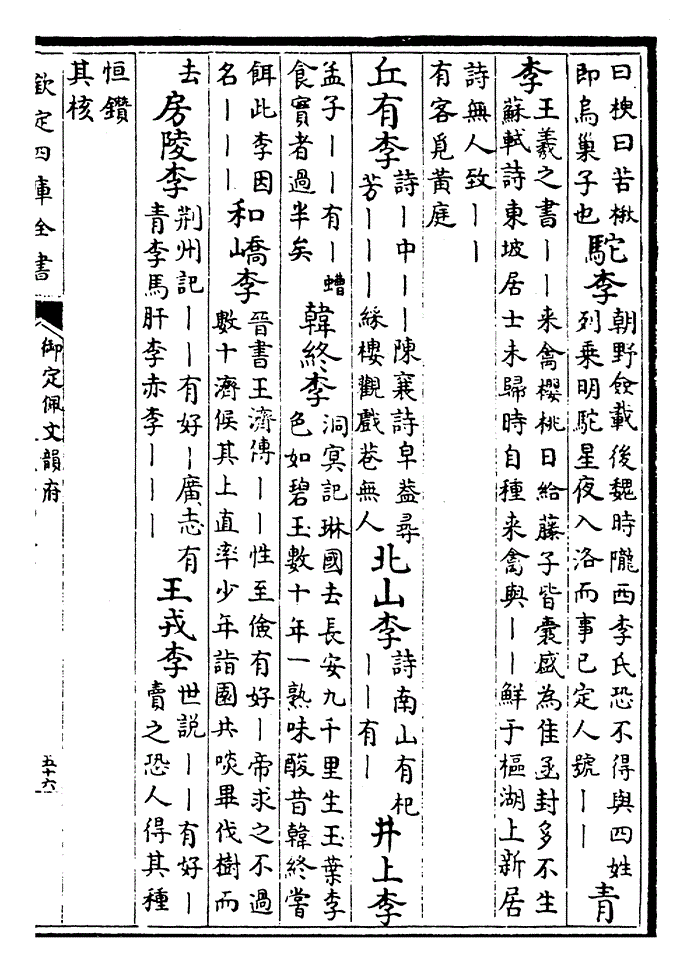 曰梗曰苦楸
即烏巢子也
駝李
朝野僉載後魏時隴西李氏恐不得與四姓
列乗明駝星夜入洛而事已定人號丨丨
青
李
王羲之書丨丨来禽櫻桃日給藤子皆囊盛為佳函封多不生
蘇軾詩東坡居士未歸時自種来禽與丨丨鮮于樞湖上新居
詩無人致丨丨
有客覓黃庭
丘有李
詩丨中丨丨陳襄詩皁葢尋
芳丨丨丨綵樓觀戲巷無人
北山李
詩南山有杞
丨丨有丨
井上李
孟子丨丨有丨螬
食實者過半矣
韓終李
洞㝠記琳國去長安九千里生玉葉李
色如碧玉數十年一熟味酸昔韓終嘗
餌此李因
名丨丨丨
和嶠李
晉書王濟傳丨丨性至儉有好丨帝求之不過
數十濟候其上直率少年詣園共啖畢伐樹而
去
房陵李
荆州記丨丨有好丨廣志有
青李馬肝李赤李丨丨丨
王戎李
世説丨丨有好丨
賣之恐人得其種
恒鑽
其核
欽定四庫全書
御定佩文韻府
五十六